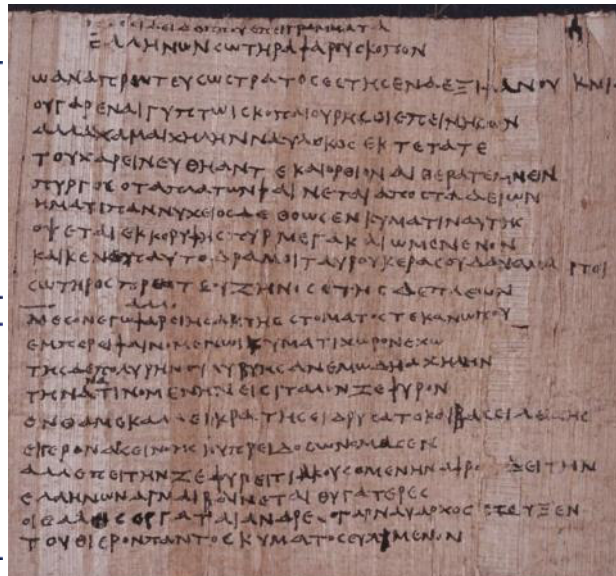 ΕΛΛΗΝΩΝСΩΤΗΡΑΦΑΡΟΥСΚΟΠΟΝ
ΩΑΝΑΠΡΩΤΕΥСΩСΤΡΑΤΟСΕСΤΗСΕΝΔΕΞΙΦΑΝΟΥ ΚΝΙ
ΟΥΓΑΡΕΝΑΙΓΥΠΤΩΙСΚΟΠΑΙΟΥΡΗСΩΙΕΠΕΙΝΗСΩΝ
ΑΛΛΑΧΑΜΑΙΧΗΛΗΝΝΑΥΛΟΧΟСΕΚΤΕΤΑΤΕ
ΤΟΥΧΑΡΕΙΝΕΥΘΗΑΝΤΕΚΑΙΟΡΘΙΟΝΑΙΘΕΡΑΤΕΜΝΕΙΝ
ΠΥΡΓΟСΟΤΑΠΛΑΤΩΝΦΑΙΝΕΤΑΙΑΠΟСΤΑΔΕΙΩΝ
ΗΜΑΤΙΠΑΝΝΥΧΕΙΟСΔΕΘΟΩСΕΝΚΥΜΑΤΙΝΑΥΤΗС
ΟΨΕΤΑΙΕΚΚΟΡΥΦΗСΠΥΡΜΕΓΑΚΑΙΩΜΕΝΕΝΟΝ
ΚΑΙΚΕΝΕΠΑΥΤΟΔΡΑΜΟΙΤΑΥΡΟΥΚΕΡΑСΟΥΔΑΝΑΜΑΡΤΟΙ
СΩΤΗΡΟСΠΡΩΤΕΥΖΗΝΙСΕΤΗСΔΕΠΛΕΙΩΝ
ΜΕСΟΝΕΓΩΦΑΡΕΙΗСΑΚΤΗССΤΟΜΑΤΟСΤΕΚΑΝΩΠΟΥ
ΕΜΠΕΡΕΙΦΑΙΝΟΜΕΝΩΙΚΥΜΑΤΙΧΩΡΟΝΕΧΩ
ΤΗСΔΕΠΟΛΥΡΗΝΟΥΛΥΒΥΗСΑΝΕΜΩΔΗΑΧΗΛΗΝ
ΤΗΝΑΝΑΤΙΝΟΜΕΝΗΝΕΙСΙΤΑΛΟΝΖΕΦΥΡΟΝ
ΕΝΘΑΜΕΚΑΛΛΕΙΚΡΑΤΗСΕΙΔΡΥСΑΤΟΚΑΙΒΑСΕΙΛΕΙССΗС
ΕΙΕΡΟΝΑΡСΕΙΝΟΗСΚΥΠΡΕΙΔΟСΩΝΟΜΑСΕΝ
ΑΛΛΕΠΕΙΤΗΝΖΕΦΥΡΕΙΤΙΝΑΚΟΥСΟΜΕΝΗΝΑΦΡΟ ΞΕΙΤΗΝ
ΕΛΛΗΝΩΝΑΓΝΑΙΒΑΙΝΕΤΑΙΘΥΓΑΤΕΡΕС
ΟΙΘΑΛΟСΕΡΓΑΤΑΙΑΝΔΡΕСΟΓΑΡΝΑΥΑΡΧΟСΕΤΕΥΞΕΝ
ΤΟΥΘΙΕΡΟΝΠΑΝΤΟСΚΥΜΑΤΟСΕΥΛΙΜΕΝΟΝ